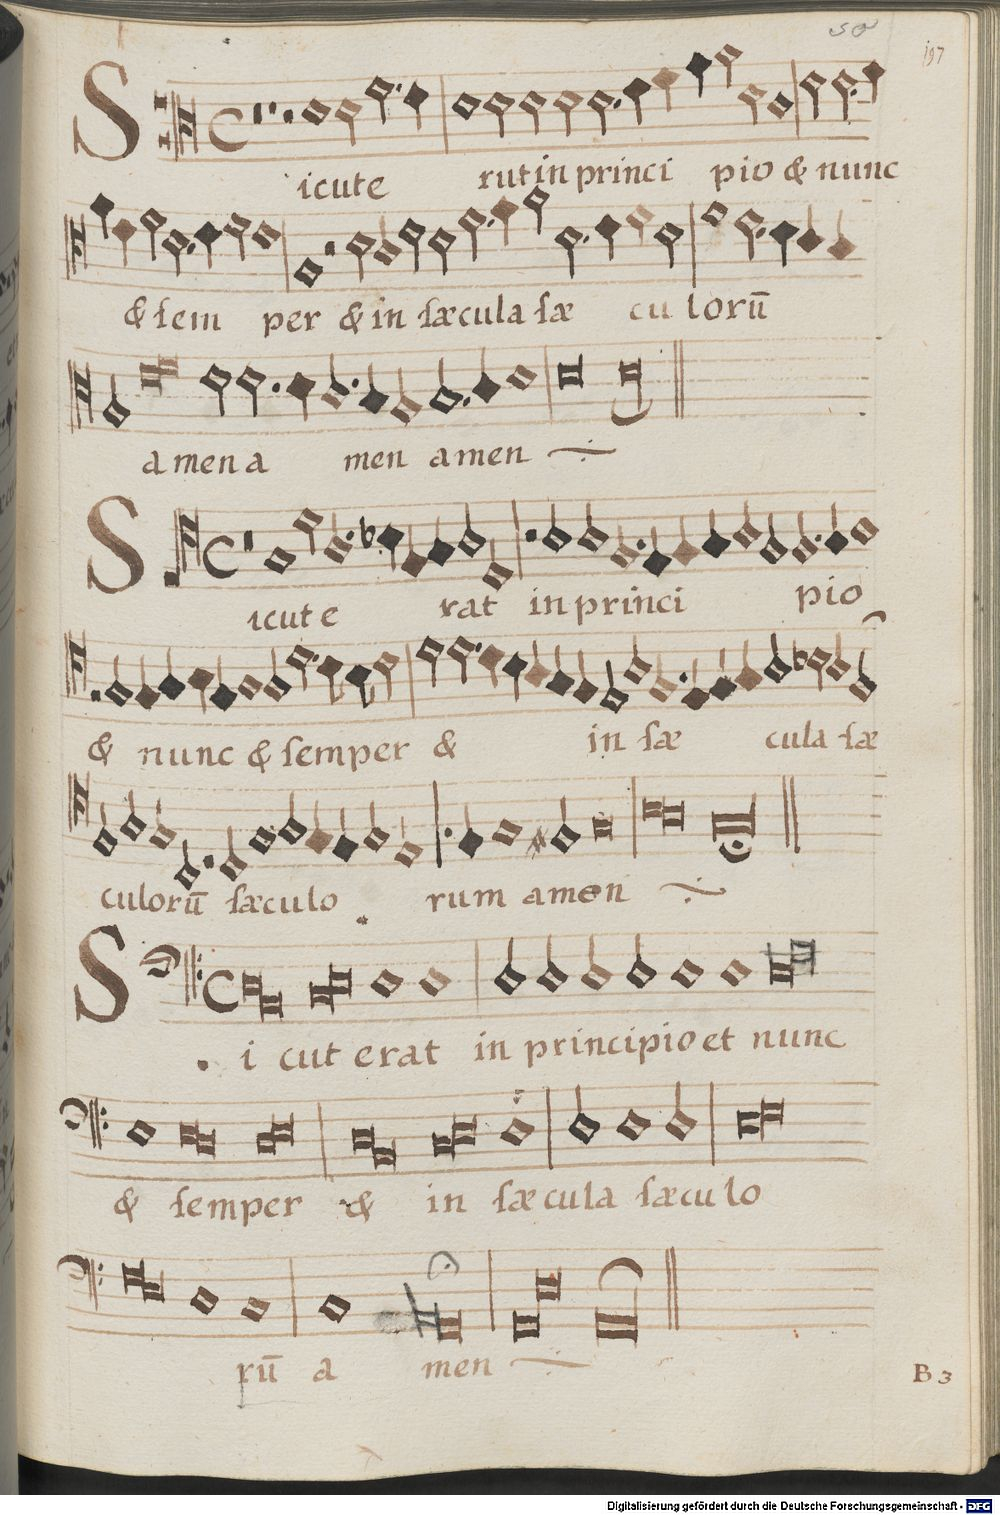 50
197
Sicute rut in princi pio & nunc
& sem per & in sæcula sæ cu lorū
amen a men amen
Sicut e rat in princi pio
& nunc & semper & in sæ cula sæ
culorū sæculo rum amen
Si cut erat in principio et nunc
& semper & in sæcula sæculo
rū a men
B 3
Digitalisierung gefördert durch die Deutsche Forschungsgemeinschaft - DFG